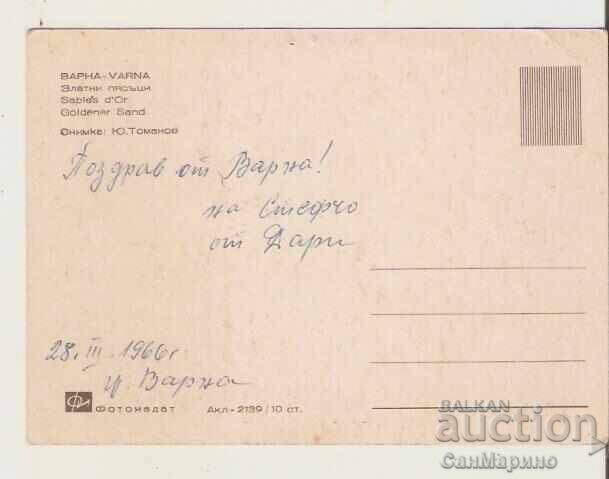 ВАРНА - VARNA
Златни пясъци
Sables d'Or
Goldener Sand
Снимка: Ю.Томанов
Поздрав от Варна!
на Стефчо
от Дари
28. III. 1966 г
гр Варна
Фотоиздат Акл - 2139 / 10 ст.
BALKAN
auction
СанМарино